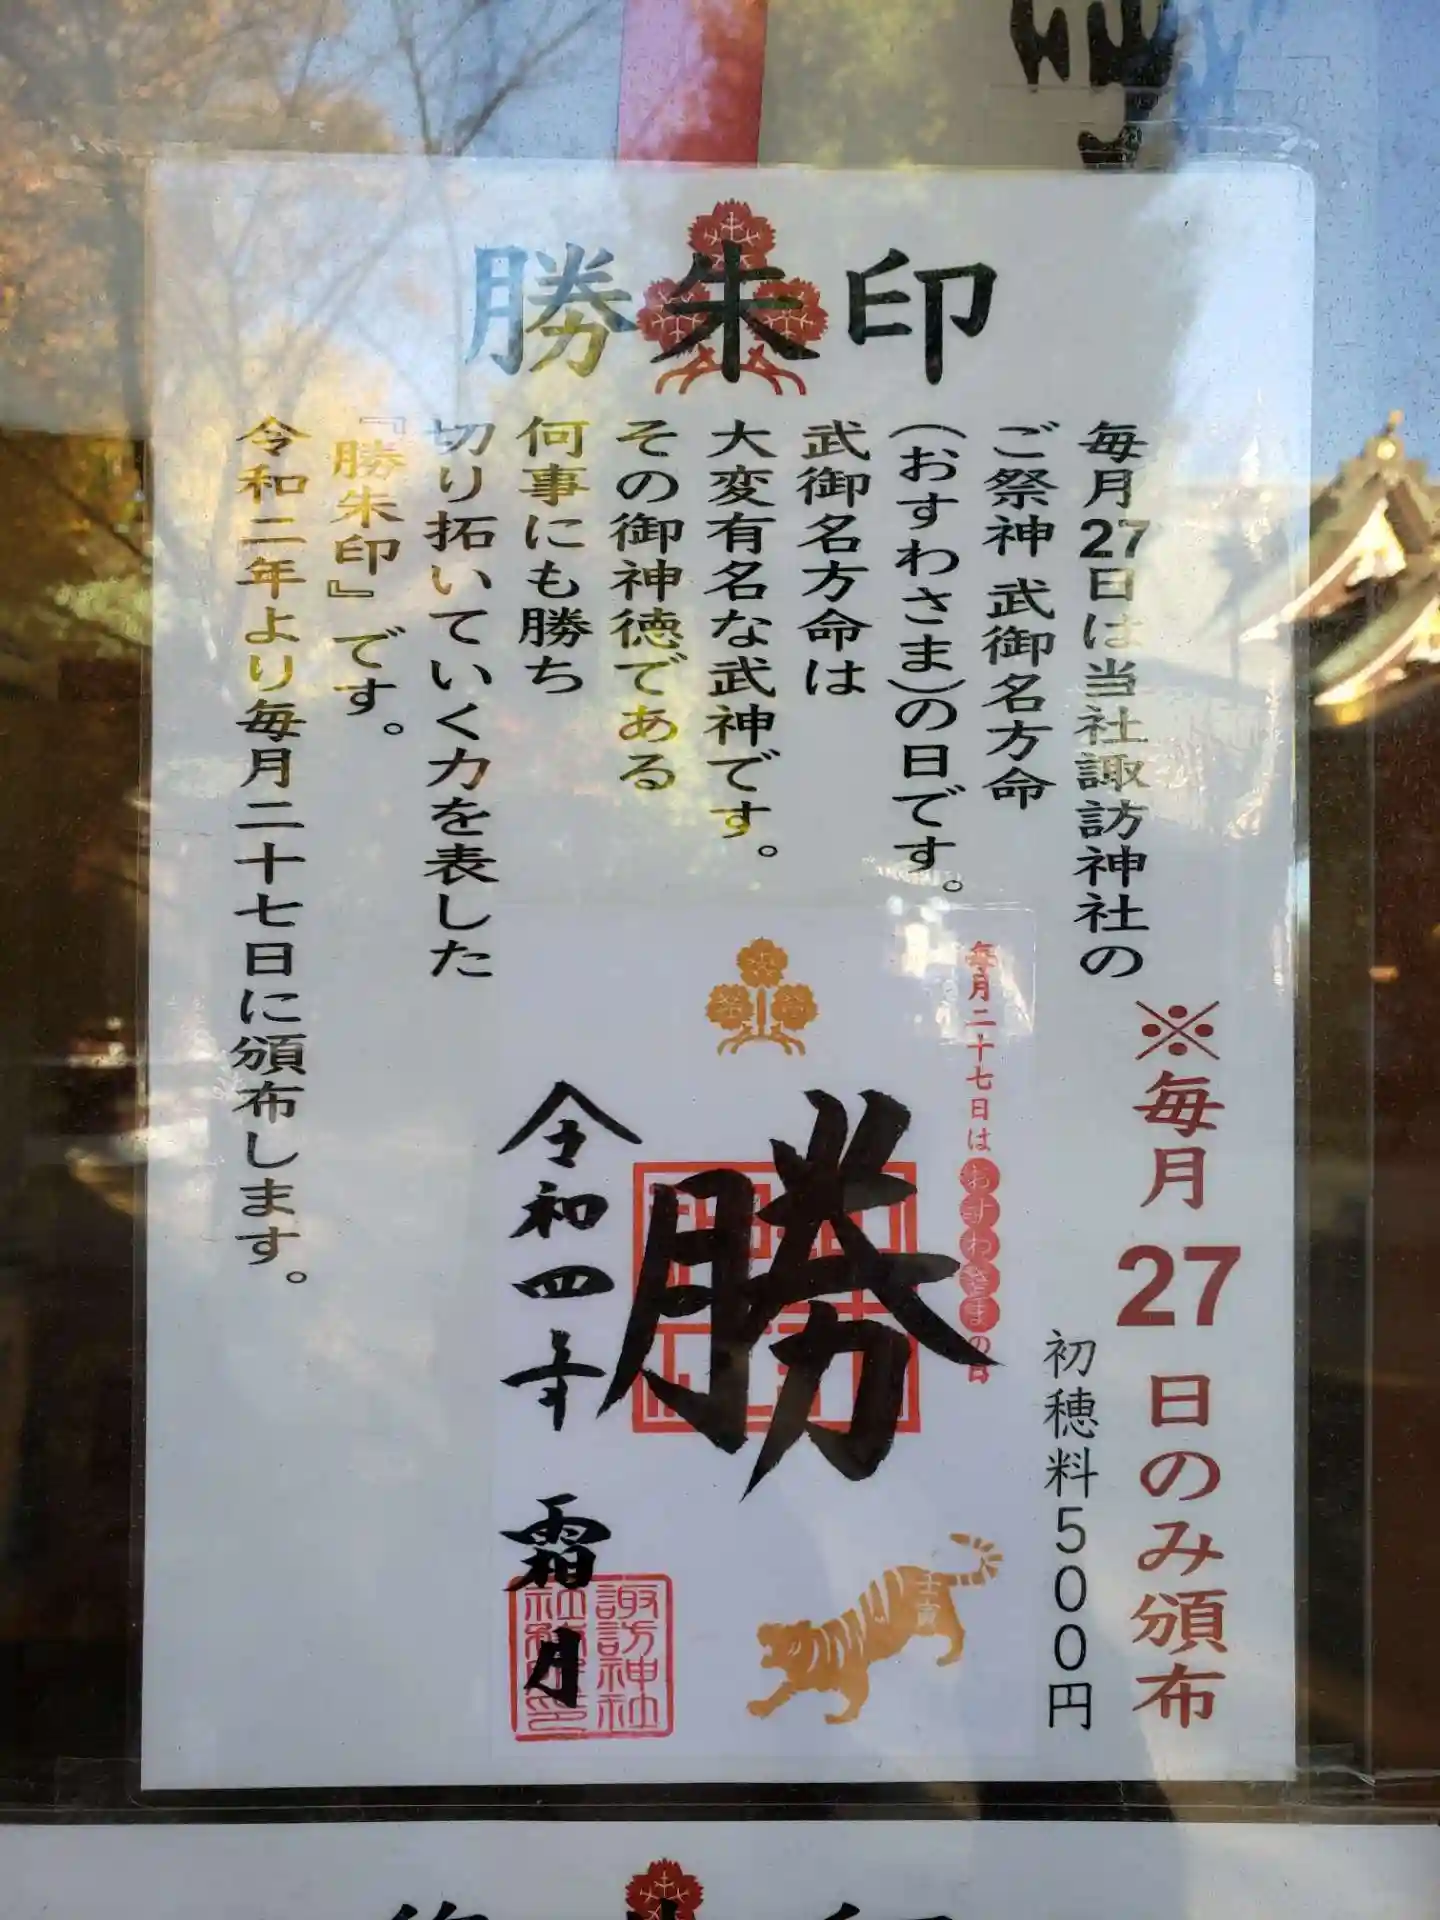 勝朱印
毎月27日は当社諏訪神社の
ご祭神 武御名方命
(おすわさま)の日です。
武御名方命は
大変有名な武神です。
その御神徳である
何事にも勝ち
切り拓いていく力を表した
『勝朱印』です。
令和二年より毎月二十七日に頒布します。
※毎月27日のみ頒布
初穂料500円
毎月二十七日はおすわさまの日
勝
令和四年 霜月
諏訪神社
壬寅